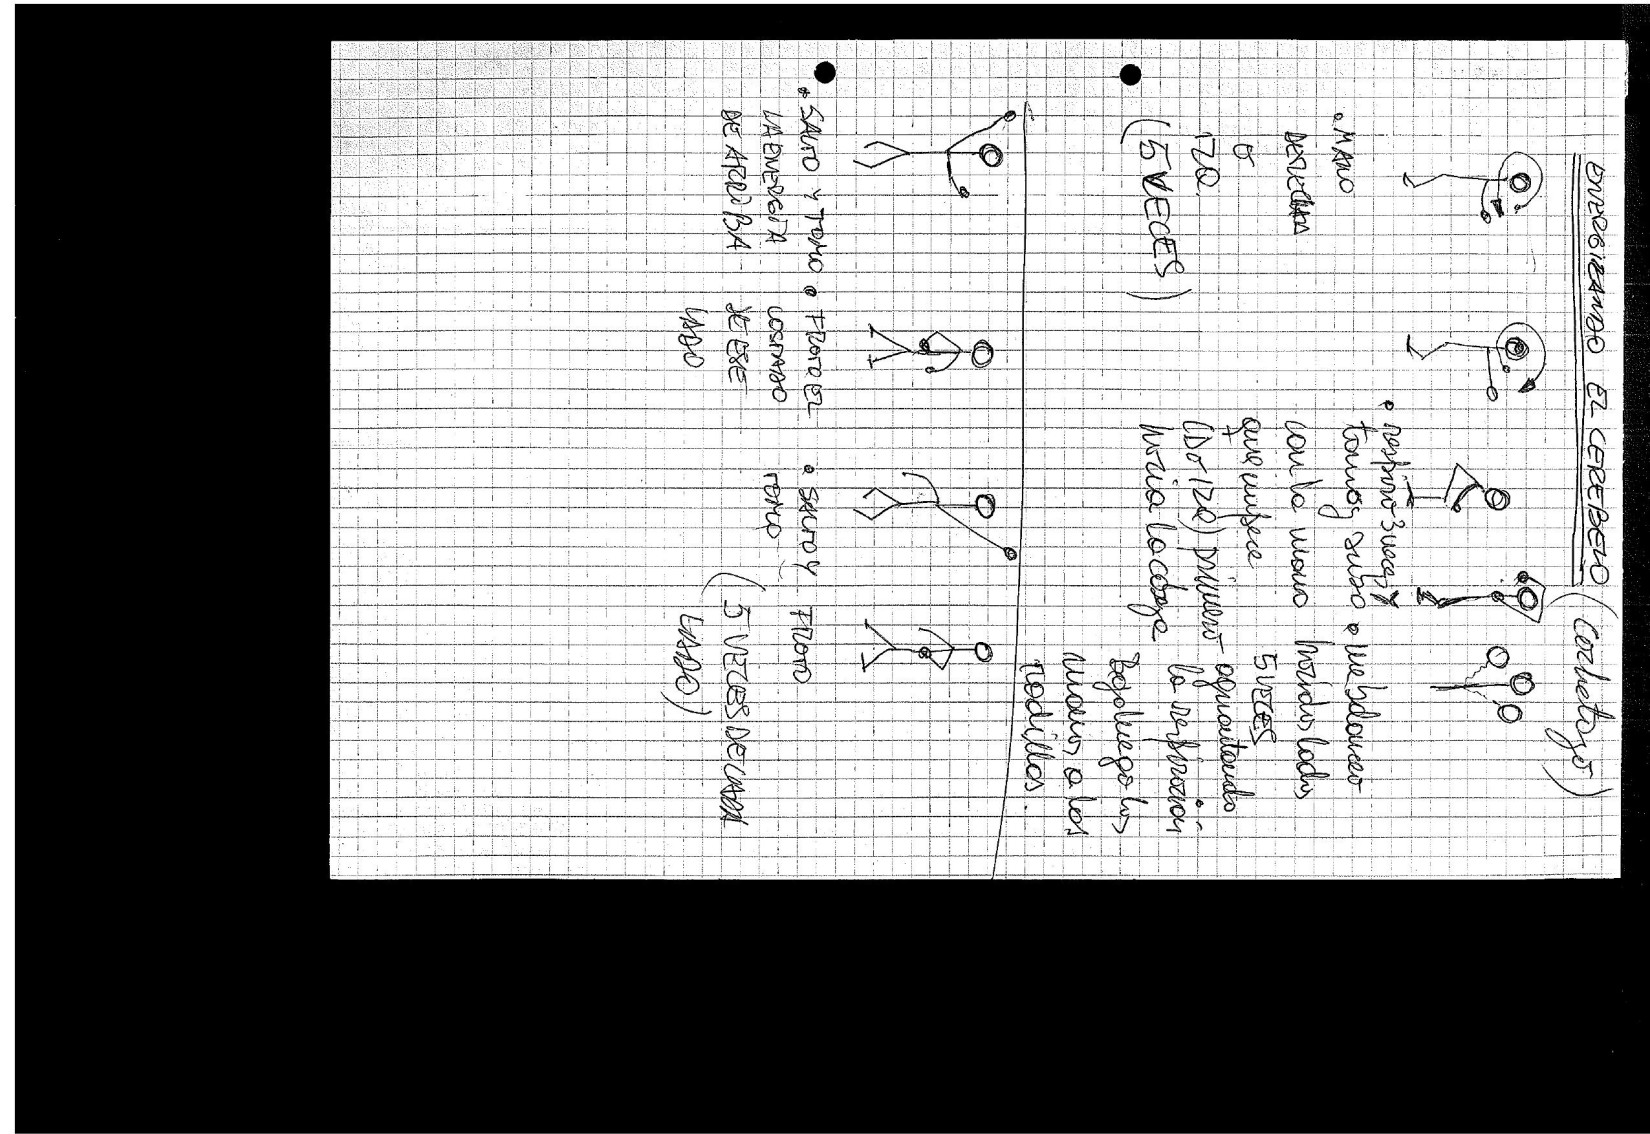 ENERGIZANDO EL CEREBELO (Corbatazo)
• MANO
DERECHA
o
IZQ.
(5 VECES)
• respiro 3 veces y
tomo y subo
con la mano
que empecé
(D o IZQ) primero
hacia la cabeza
• me balanceo
hacia los lados
5 VECES
aguantando
la respiración
Bajo luego las
manos a las
rodillas.
• SALTO Y TOMO
LA ENERGÍA
DE ARRIBA
• FROTO EL
COSTADO
DE ESE
LADO
• SALTO Y
TOMO
FROTO
(5 VECES DE CADA
LADO)